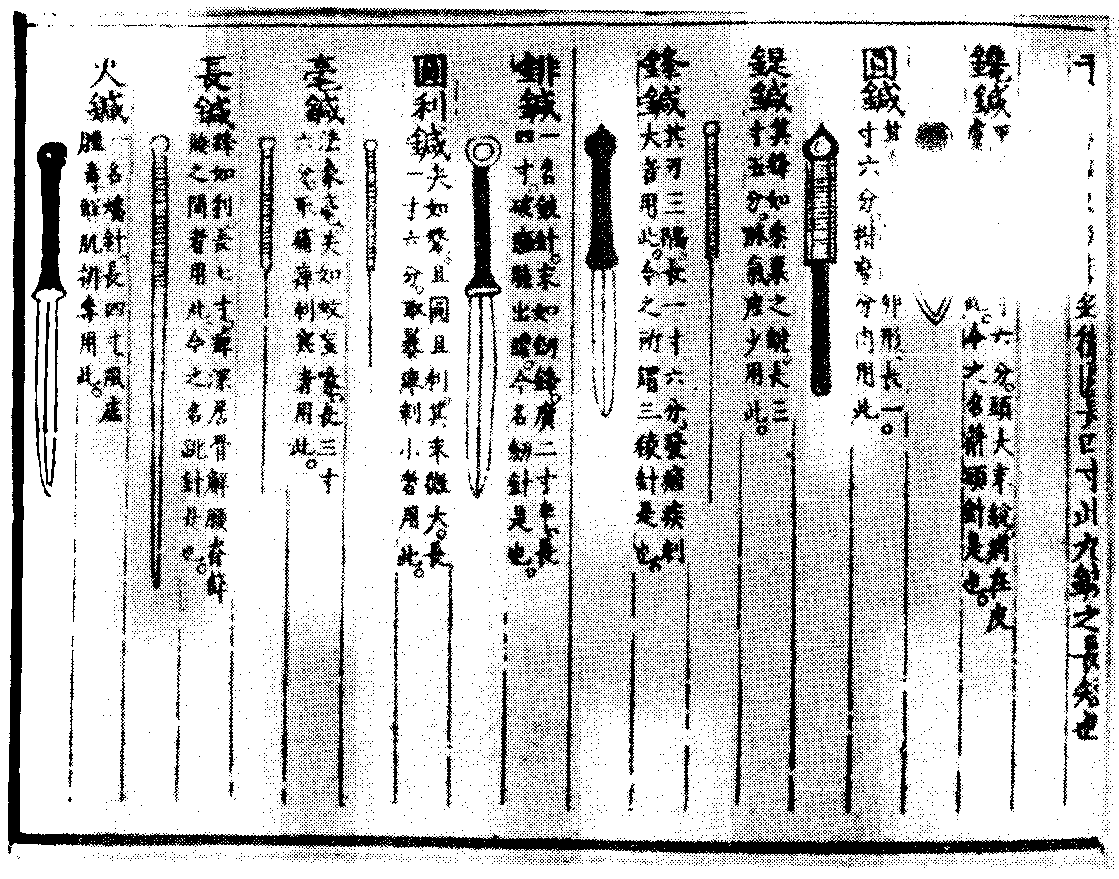 鑱鍼
六分。頭大末銳。病在皮
此。今之名箭頭針是也。
圓鍼
其
卵形。長一
寸六分。揩摩分肉用此。
鍉鍼
其鋒如黍粟之銳。長三
寸五分。脉氣虛少用此。
鋒鍼
其刃三隅。長一寸六分。發痼疾刺
大者用此。今之所謂三稜針是也。
鈹鍼
一名鈹針。末如劍鋒。廣二寸半。長
四寸。破癰腫出膿。今名劒針是也。
圓利鍼
尖如氂。且圓且利。其末微大。長
一寸六分。取暴痺刺小者用此。
毫鍼
法象毫。尖如蚊虻喙。長三寸
六分。取痛痺刺寒者用此。
長鍼
鋒如利。長七寸。痺深居骨解腰脊節
腠之間者用此。今之名跳針是也。
火鍼
一名燔針。長四寸。風虛
腫毒解肌排毒用此。